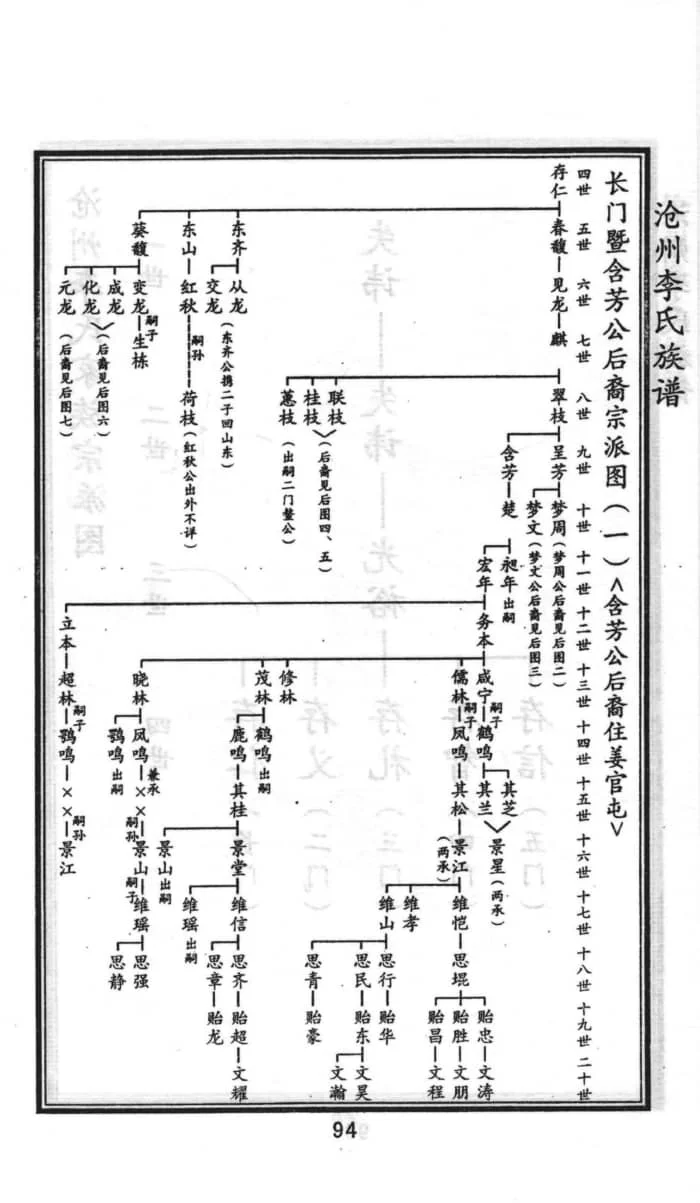 沧州李氏族谱
长门暨含芳公后裔宗派图（一）<含芳公后裔住姜官屯>
四世 五世 六世 七世 八世 九世 十世 十一世 十二世 十三世 十四世 十五世 十六世 十七世 十八世 十九世 二十世
存仁
春馥—见龙—麒
翠枝
呈芳
梦周（梦周公后裔见后图二）
梦文（梦文公后裔见后图三）
含芳—楚
昶年出嗣
宏年
务本
咸宁—嗣子鹤鸣
其芝
其兰
景星（两承）
儒林—嗣子凤鸣—其松—景江（两承）
维恺—思堒
贻忠—文涛
贻胜—文朋
贻昌—文程
维孝
维山
思行—贻华
思民—贻东
文昊
文瀚
思青—贻豪
修林
茂林
鹤鸣出嗣
鹿鸣—其桂
景堂
维信
思齐—贻超—文耀
思章—贻龙
维瑶出嗣
景山出嗣
晓林
凤鸣兼承—××—嗣孙景山—嗣子维瑶
思强
思静
鹗鸣出嗣
立本—超林—嗣子鹗鸣—××—嗣孙景江
联枝
桂枝
（后裔见后图四、五）
蕙枝（出嗣二门鳌公）
东齐
从龙
交龙
（东齐公携二子回山东）
东山—红秋
嗣孙荷枝（红秋公出外不详）
葵馥
变龙—嗣子生栋
成龙
化龙
（后裔见后图六）
元龙（后裔见后图七）
94